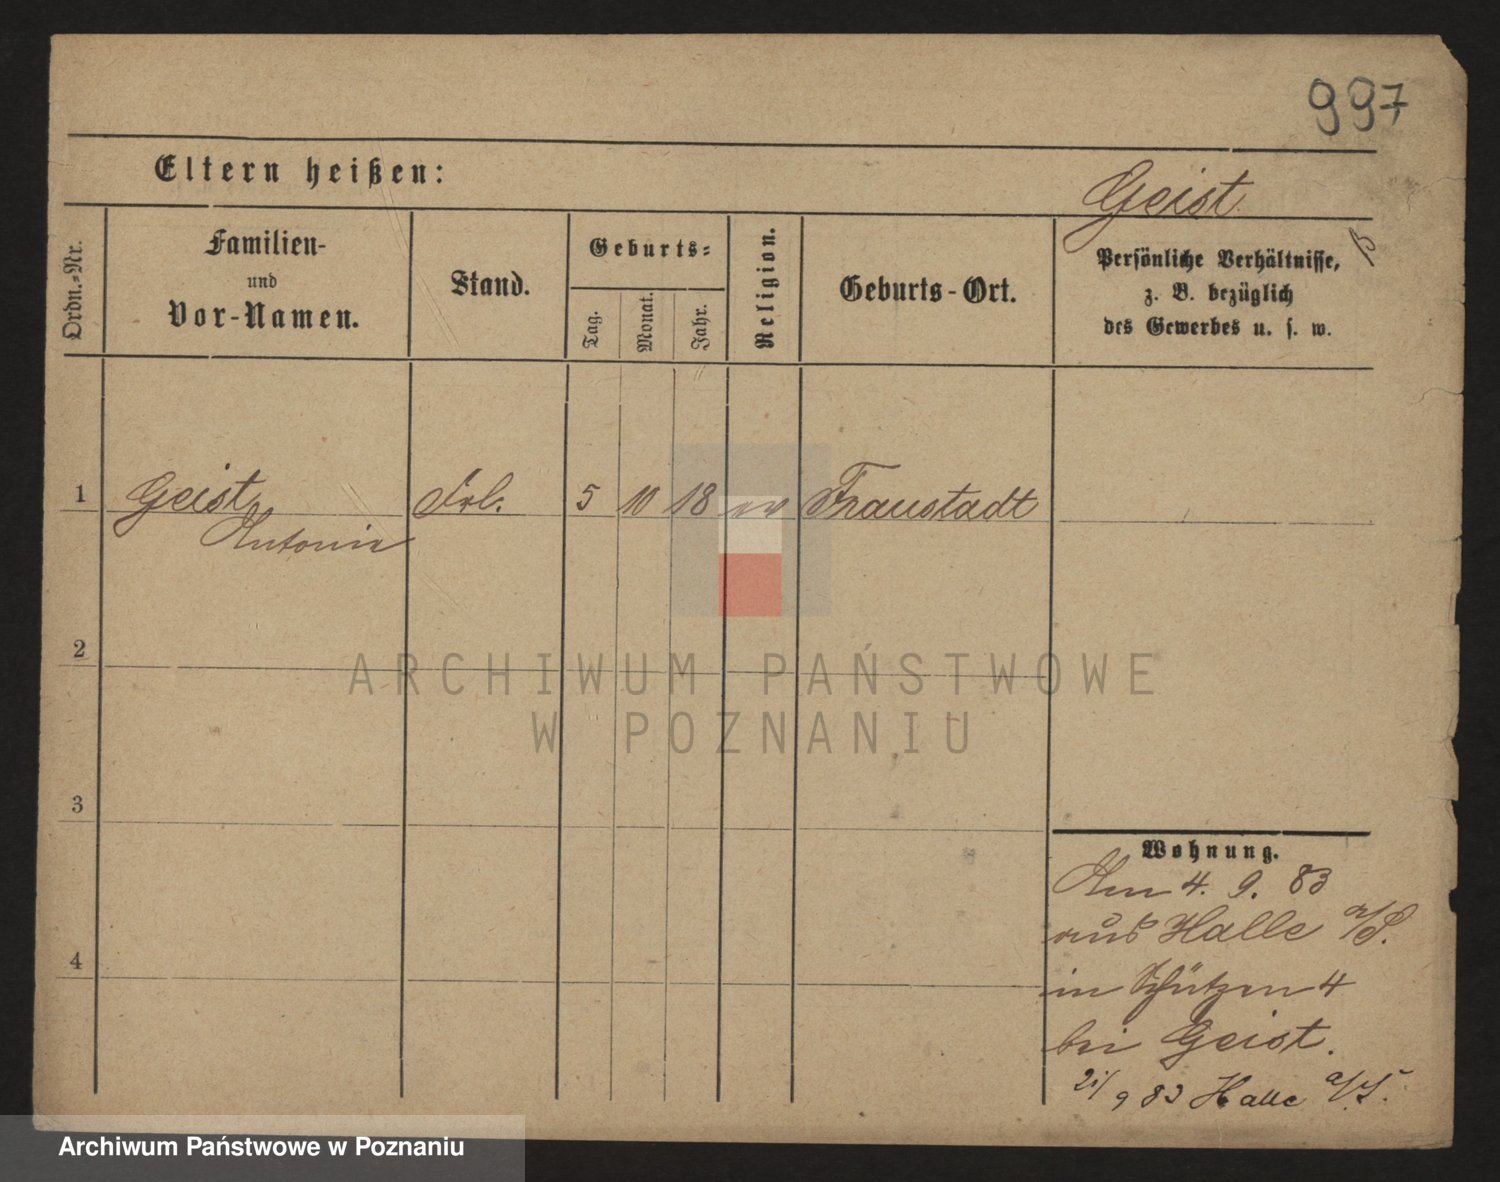 997
Eltern heißen:
Geist
Ordn.-Nr.
Familien-
und
Vor-Namen.
Stand.
Geburts-
Tag.
Monat.
Jahr.
Religion.
Geburts-Ort.
Persönliche Verhältnisse,
z. B. bezüglich
des Gewerbes u. s. w.
1 Geist Frl. 5 10 18 ev Fraustadt
Antonie
2
ARCHIWUM PAŃSTWOWE
W POZNANIU
3
4
Wohnung.
Am 4. 9. 83
aus Halle a/S.
in Schützen 4
bei Geist.
21/9 83 Halle a/S.
Archiwum Państwowe w Poznaniu